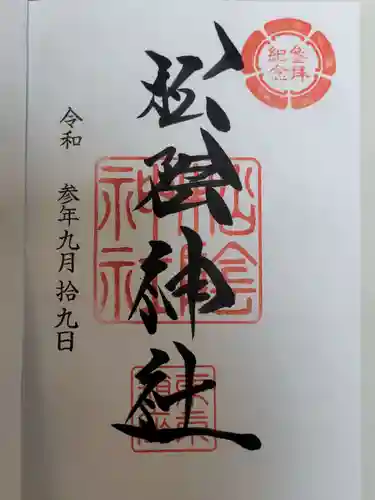 参拝
紀念
松陰神社
松陰
神社
東京
世田谷
令和 参年九月拾九日